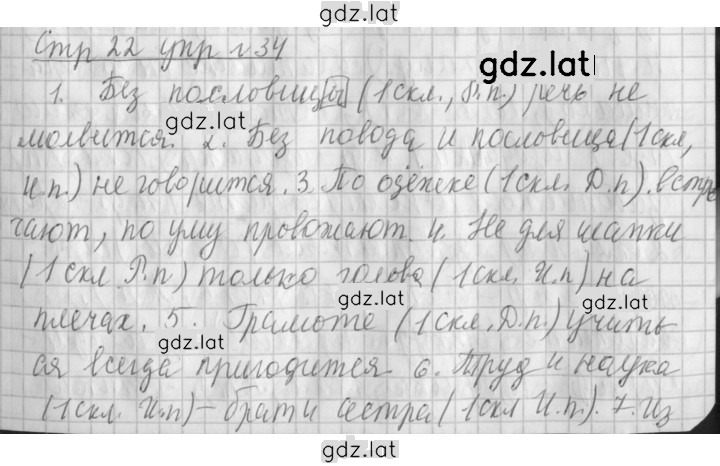 gdz.lat
Стр 22 упр №34
gdz.lat
1. Без пословиц[ы] (1 скл., Р.п.) речь не
молвится. 2. Без повода и пословица (1 скл,
gdz.lat
И.п.) не говорится. 3. По одёжке (1 скл. Д.п). встре
чают, по уму провожают. 4. Не для шапки
(1 скл Р.п) только голова (1 скл. И.п) на
gdz.lat
плечах. 5. Грамоте (1 скл. Д.п.) учить
gdz.lat
ся всегда пригодится 6. Труд и наука
(1 скл. И.п) – брат и сестра (1 скл И.п.). 7. Из
gdz.lat